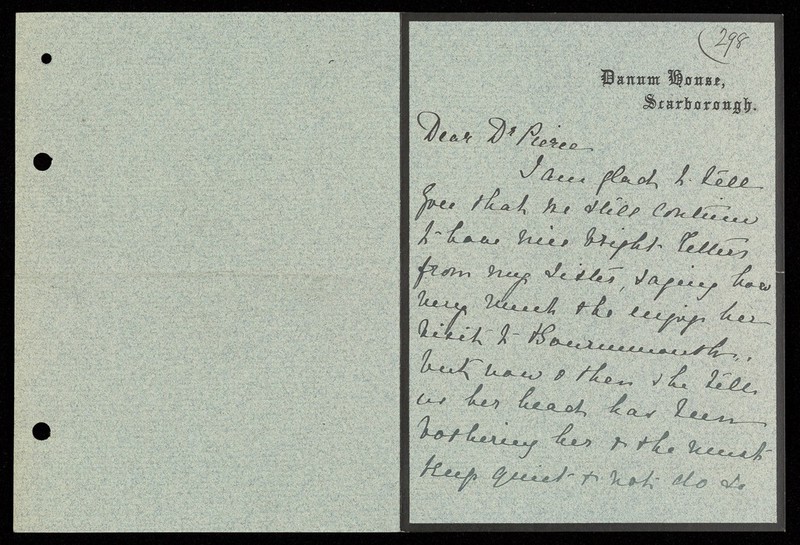 298
Danum House,
Scarborough.
Dear Dr Pierce
I am glad to tell
you that we still continue
to have nice bright letters
from my sister, saying how
very much she enjoys her
visit to Bournemouth,
but now & then she tells
us her head has been
bothering her & she must
keep quiet & not do so